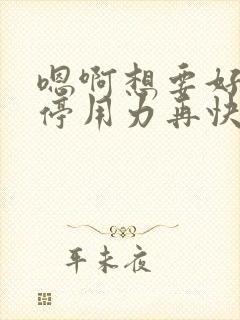 嗯啊想要好
停用力再快
年未夜